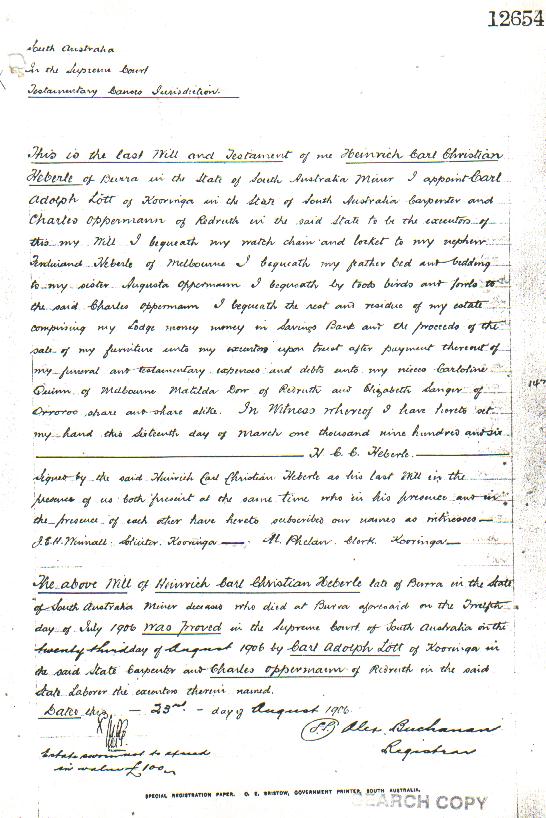 12654
South Australia
In the Supreme Court
Testamentary Causes Jurisdiction.
This is the last Will and Testament of me Heinrich Carl Christian
Heberle of Burra in the State of South Australia Miner I appoint Carl
Adolph Lott of Kooringa in the State of South Australia Carpenter and
Charles Oppermann of Redruth in the said State to be the executors of
this my Will I bequeath my watch chain and locket to my nephew
Ferdinand Heberle of Melbourne I bequeath my feather bed and bedding
to my sister Augusta Oppermann I bequeath by tools birds and fowls to
the said Charles Oppermann I bequeath the rest and residue of my estate
comprising my Lodge money money in Savings Bank and the proceeds of the
sale of my furniture unto my executors upon trust after payment thereout of
my funeral and testamentary expenses and debts unto my nieces Caroline
Quinn of Melbourne Matilda Dorr of Redruth and Elizabeth Sanger of
Orroroo share and share alike. In Witness whereof I have hereto set
my hand this Sixteenth day of March one thousand nine hundred and six
H. C. C. Heberle.
Signed by the said Heinrich Carl Christian Heberle as his last Will in the
presence of us both present at the same time who in his presence and in
the presence of each other have hereto subscribed our names as witnesses
Kooringa M. Phelan Clerk Kooringa
The above Will of Heinrich Carl Christian Heberle late of Burra in the State
of South Australia Miner deceased who died at Burra aforesaid on the Twelfth
day of July 1906 was proved in the Supreme Court of South Australia on the
twenty third day of August 1906 by Carl Adolph Lott of Kooringa in
the said State Carpenter and Charles Oppermann of Redruth in the said
State Laborer the executors therein named.
Dated this 23rd day of August 1906
Alex Buchanan
Registrar
Estate sworn not to exceed
in value £100
SPECIAL REGISTRATION PAPER. C. E. BRISTOW, GOVERNMENT PRINTER, SOUTH AUSTRALIA.
SEARCH COPY
147